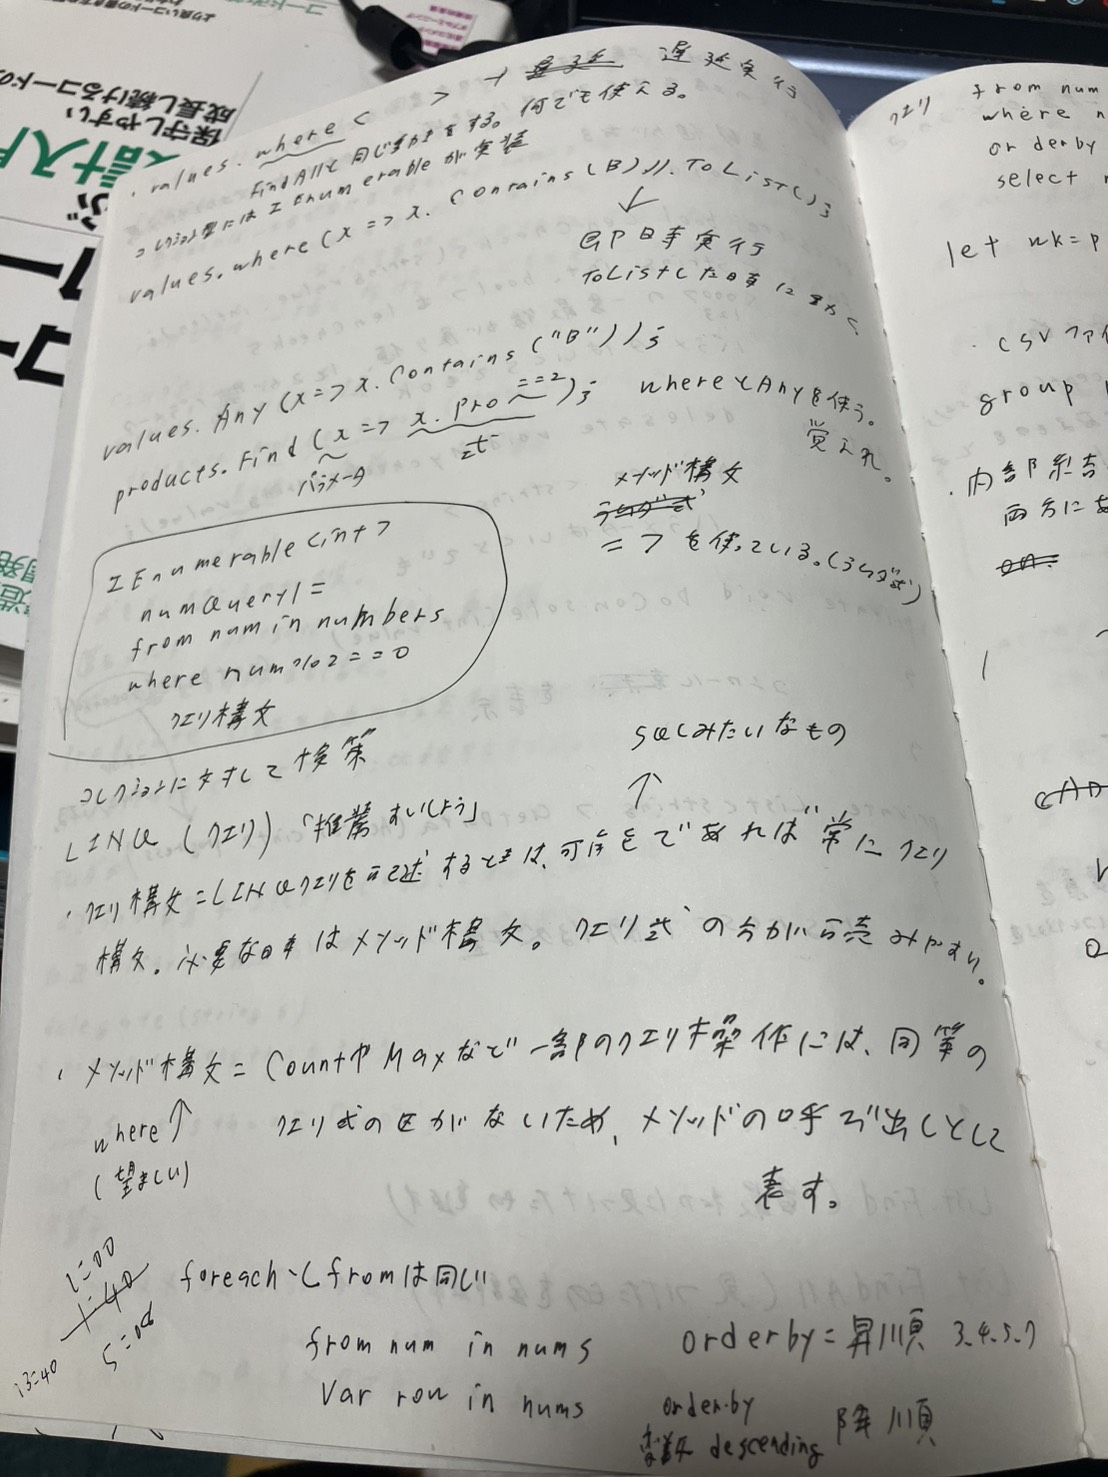 ・values.where<   > → 遅延 遅延実行
FindAllと同じ動きをする。何でも使える。
コレクション型にはIEnumerableが実装
values.where(x => x.Contains(B)).ToList();
↓
即時実行
ToListした時に動く
values.Any(x => x.Contains("B"));
products.Find(x => x.pro==2);
パラメータ 式
whereとAnyを使う。
覚えれ。
メソッド構文
ラムダ式
=>を使っている。(ラムダ式)
IEnumerable<int>
numQuery1 =
from num in numbers
where num%2==0
クエリ構文
コレクションに対して検索
SQLみたいなもの
↑
LINQ (クエリ) 「推薦 すいしょう」
・クエリ構文=LINQクエリを記述するときは、可能であれば常にクエリ
構文。必要な時はメソッド構文。クエリ式の方が読みやすい。
・メソッド構文=CountやMaxなど一部のクエリ操作には、同等の
クエリ式の区がないため、メソッドの呼び出しとして
表す。
where↑
(望ましい)
1=00
1=40
5=00
13=40
foreachとfromは同じ
from num in nums
var row in nums
orderby=昇順 3.4.5.7
order.by
変数 descending 降順
クエリ
from num
where n
orderby
select n
let wk=p
・CSVファイ
group
・内部結合
両方にあ
on.
保守しやすい
成長し続けるコードの